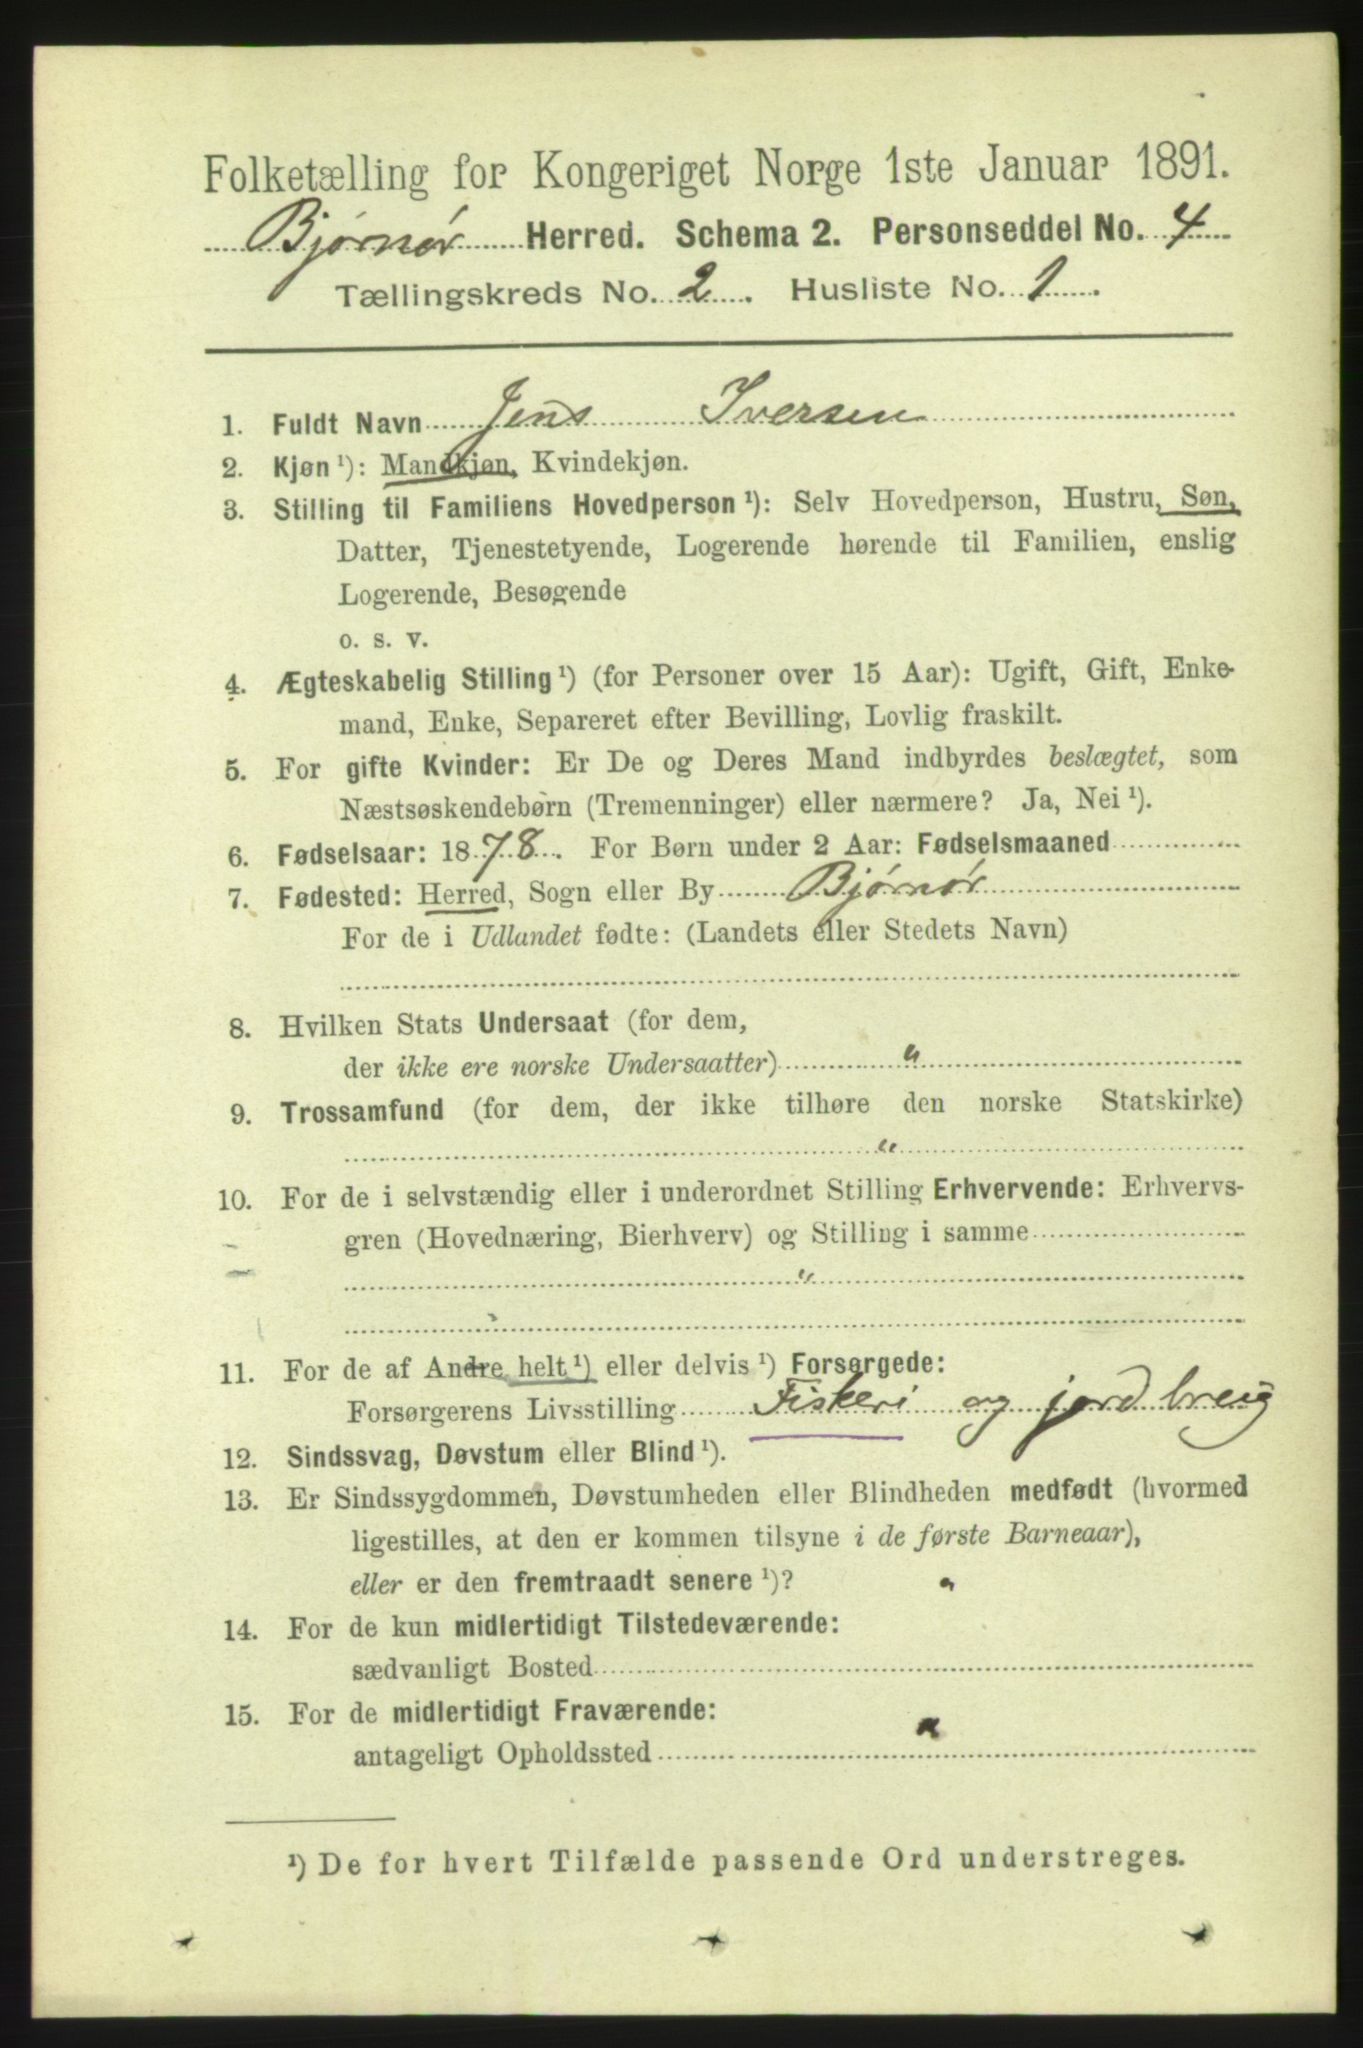 Folketælling for Kongeriget Norge 1ste Januar 1891.
Bjørnør Herred. Schema 2. Personseddel No. 4
Tællingskreds No. 2. Husliste No. 1.
1. Fuldt Navn Jens Iversen
2. Kjøn ¹): Mandkjøn, Kvindekjøn.
3. Stilling til Familiens Hovedperson ¹): Selv Hovedperson, Hustru, Søn,
Datter, Tjenestetyende, Logerende hørende til Familien, enslig
Logerende, Besøgende
o. s. v.
4. Ægteskabelig Stilling ¹) (for Personer over 15 Aar): Ugift, Gift, Enke-
mand, Enke, Separeret efter Bevilling, Lovlig fraskilt.
5. For gifte Kvinder: Er De og Deres Mand indbyrdes beslægtet, som
Næstsøskendebørn (Tremenninger) eller nærmere? Ja, Nei ¹).
6. Fødselsaar: 1878. For Børn under 2 Aar: Fødselsmaaned
7. Fødested: Herred, Sogn eller By Bjørnør
For de i Udlandet fødte: (Landets eller Stedets Navn)
8. Hvilken Stats Undersaat (for dem,
der ikke ere norske Undersaatter) "
9. Trossamfund (for dem, der ikke tilhøre den norske Statskirke)
"
10. For de i selvstændig eller i underordnet Stilling Erhvervende: Erhvervs-
gren (Hovednæring, Bierhverv) og Stilling i samme
"
11. For de af Andre helt ¹) eller delvis ¹) Forsørgede:
Forsørgerens Livsstilling Fiskeri og jordbreig
12. Sindssvag, Døvstum eller Blind ¹).
13. Er Sindssygdommen, Døvstumheden eller Blindheden medfødt (hvormed
ligestilles, at den er kommen tilsyne i de første Barneaar),
eller er den fremtraadt senere ¹)? "
14. For de kun midlertidigt Tilstedeværende:
sædvanligt Bosted
15. For de midlertidigt Fraværende:
antageligt Opholdssted "
¹) De for hvert Tilfælde passende Ord understreges.